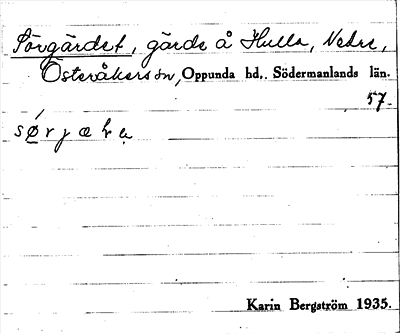 Sörgärdet, gärde å Hulla, Nedre,
Österåkers sn, Oppunda hd., Södermanlands län.
57.
Karin Bergström 1935.